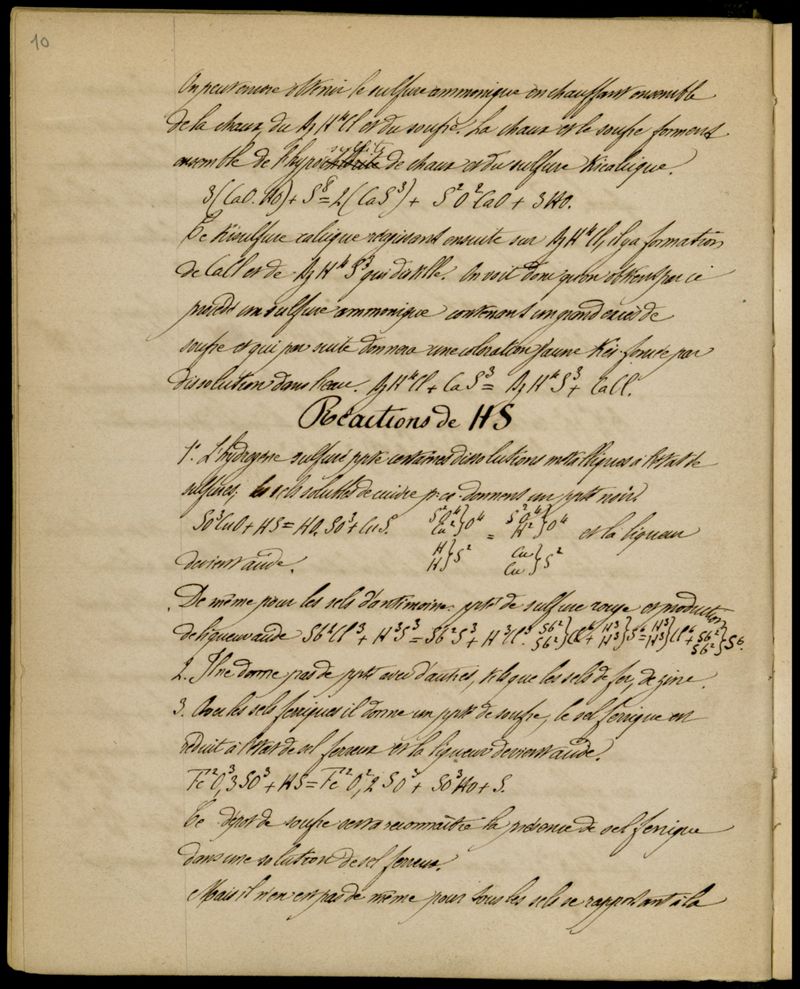 10
On peut encore obtenir le sulfure ammonique en chauffant ensemble
de la chaux, du AzH⁴Cl et du soufre. La chaux et le soufre forment
sulfite
ensemble de l'hypochlorite de chaux et du sulfure tricalcique.
3(CaO.HO) + S⁸ = 2(CaS³) + S²O²CaO + 3HO.
Ce trisulfure calcique réagissant ensuite sur AzH⁴Cl, il y a formation
de CaCl et de AzH⁴S³ qui distille. On voit donc qu'on obtient par ce
procédé un sulfure ammonique contenant un grand excès de
soufre et qui par suite donnera une coloration jaune très foncée par
dissolution dans l'eau. AzH⁴Cl + CaS³ = AzH⁴S³ + CaCl.
Réactions de HS
1° L'hydrogène sulfuré ppte certaines dissolutions métalliques à l'état de
sulfures, les sels solubles de cuivre p. ex. donnent un ppté noir.
SO³CuO + HS = HO,SO³ + CuS. S²O⁴ Cu² } O⁴ H H } S² = S²O⁴ H² } O⁴ Cu Cu } S² et la liqueur
devient acide.
De même pour les sels d'antimoine. ppté de sulfure rouge et production
de liqueur acide Sb²Cl³ + H³S³ = Sb²S³ + H³Cl³. Sb² Sb² } Cl⁶ + H³ H³ } S⁶ = H³ H³ } Cl⁶ + Sb² Sb² } S⁶.
2. Il ne donne pas de ppté avec d'autres, tels que les sels de fer, de zinc.
3. Avec les sels ferriques il donne un ppté de soufre, le sel ferrique est
réduit à l'état de sel ferreux et la liqueur devient acide.
Fe²O³,3SO³ + HS = Fe²O²,2SO³ + SO³HO + S.
Ce dépôt de soufre sert à reconnaître la présence de sel ferrique
dans une solution de sel ferreux.
Mais il n'en est pas de même pour tous les sels se rapportant à la